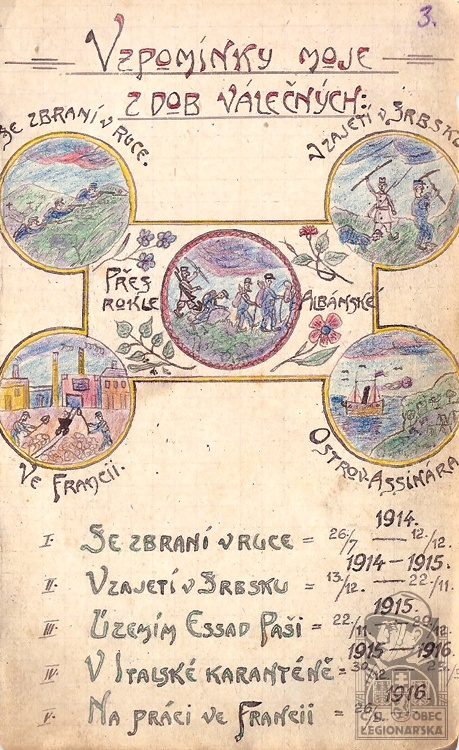 3.
Vzpomínky moje
z dob válečných:
Se zbraní v ruce.
V zajetí v Srbsku
Přes rokle Albánské
Ve Francii.
Ostrov Assinára
1914.
I. Se zbraní v ruce = 26./7 — 12./12.
1914 — 1915.
II. V zajetí v Srbsku = 13./12. — 22./11.
1915.
III. Územím Essad Paši = 22./11. —
1915 — 1916.
IV. V Italské karanténě =
1916.
V. Na práci ve Francii =
OBEC
LEGIONÁŘSKÁ